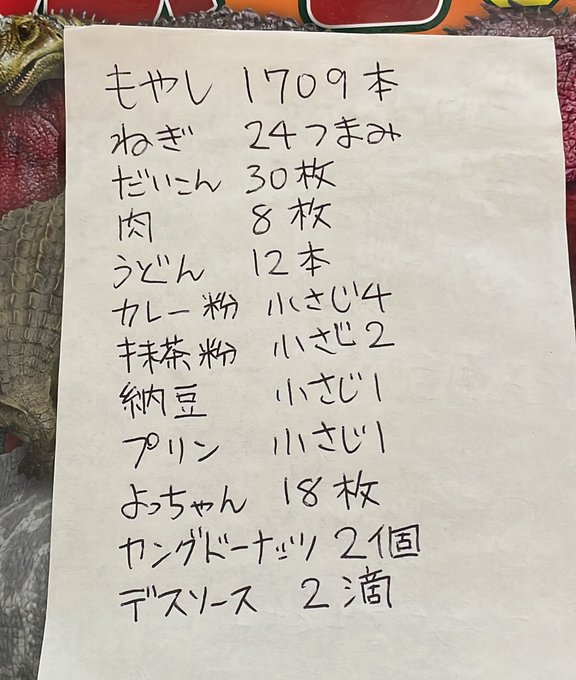 もやし 1709本
ねぎ 24つまみ
だいこん 30枚
肉 8枚
うどん 12本
カレー粉 小さじ4
抹茶粉 小さじ2
納豆 小さじ1
プリン 小さじ1
よっちゃん 18枚
ヤングドーナッツ 2個
デスソース 2滴